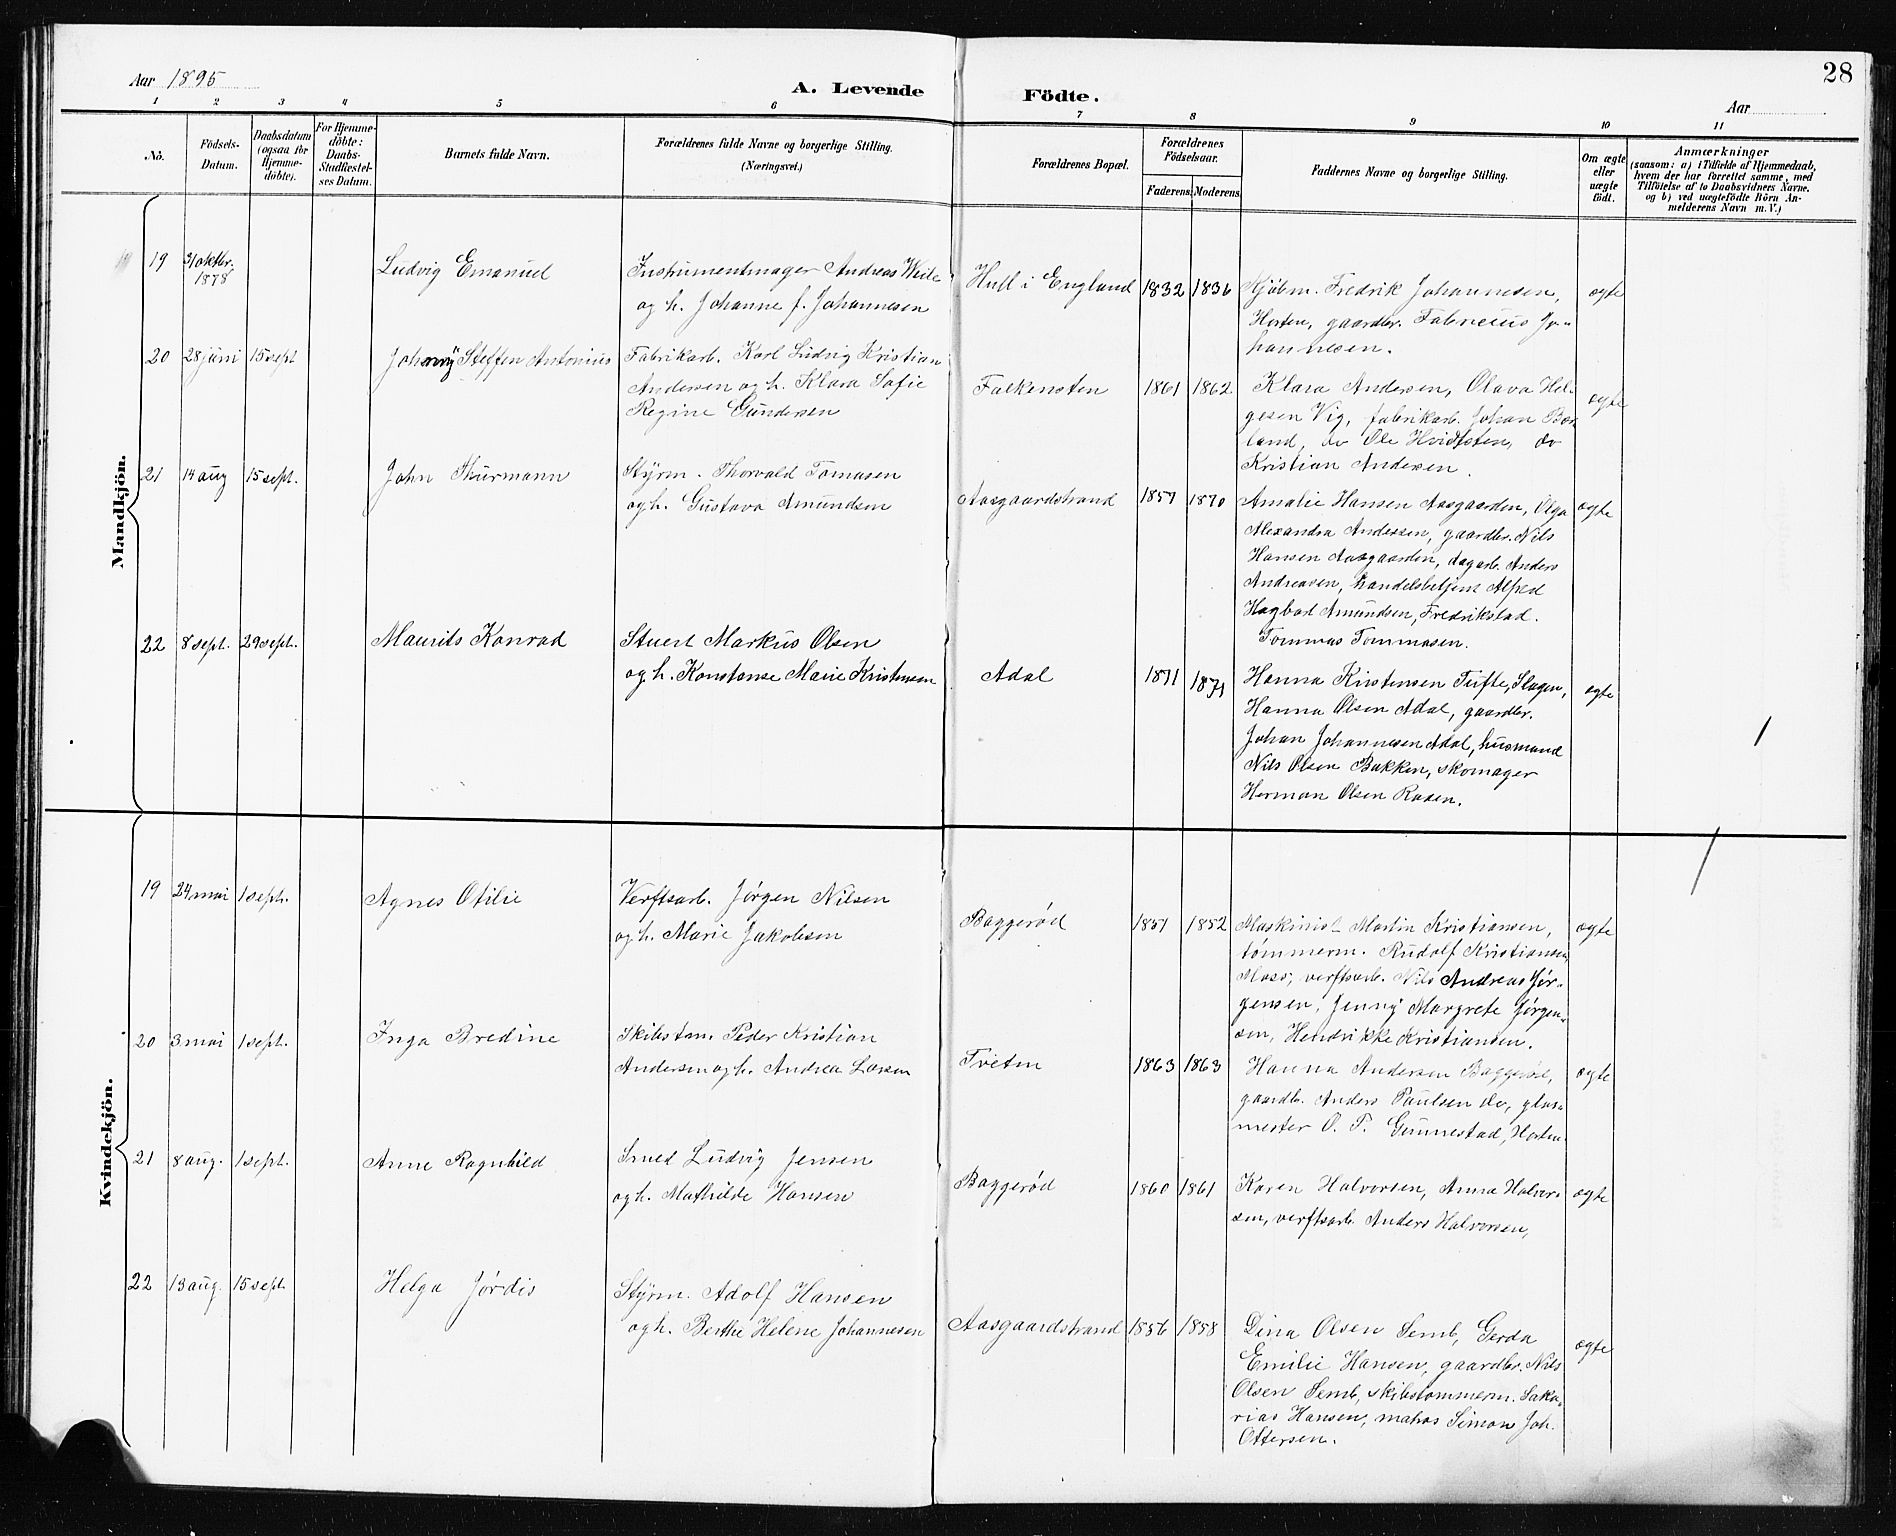 28
Aar 1895
A. Levende Födte.
Aar
1 2 3 4 5 6 7 8 9 10 11
No.
Födsels-
Datum.
Daabsdatum
(ogsaa for
Hjemme-
döbte).
For Hjemme-
döbte:
Daabs-
Stadfæstel-
ses Datum.
Barnets fulde Navn.
Forældrenes fulde Navne og borgerlige Stilling.
(Næringsvei.)
Forældrenes Bopæl.
Forældrenes
Födselsaar.
Faderens. Moderens.
Faddernes Navne og borgerlige Stilling.
Om ægte
eller
uægte
födt.
Anmærkninger
(saasom: a) i Tilfælde af Hjemmedaab,
hvem der har forrettet samme, med
Tilföielse af to Daabsvidners Navne.
og b) ved uægtefödte Börn An-
melderens Navn m. V.)
Mandkjön.
19 31 oktbr.
1878
Ludvig Emanuel
Instrumentmager Andreas
og h. Johanne f. Johannesen
Hull i England 1832 1836
Kjøbm. Fredrik Johannesen,
Horten, gaardbr. Fabricius Jo-
hannesen.
ægte
20 28 juni 15 sept
Johnny Steffen Antonius
Fabrikarb. Karl Ludvig Kristian
Andersen og h. Klara Sofie
Regine Gundersen
Falkensten 1861 1862
Klara Andersen, Olava Hel-
gesen Vig, fabrikarb. Johan
land, do Ole Hvidtsten, do
Kristian Andersen.
ægte
21 14 aug 15 sept.
John Thurmann
Styrm. Thorvald Tomasen
og h. Gustava Amundsen
Aasgaardstrand 1857 1870
Amalie Hansen Aasgaarden, Olga
Alexandra Andersen, gaardbr. Nils
Hansen Aasgaarden, dagarb. Anders
Andreasen, handelsbetjent Alfred
Hagbart Amundsen, Fredrikstad.
Tommas Tommasen.
ægte
22 8 sept. 29 sept.
Maurits Konrad
Stuert Markus Olsen
og h. Konstanse Marie Kristensen
Adal 1871 1871
Hanna Kristensen Tufte, Slagen,
Hanna Olsen Adal, gaardbr.
Johan Johannesen Adal, husmand
Nils Olsen Bakken, skomager
Herman Olsen Rasen.
ægte
Kvindekjön.
19 24 mai 1 sept.
Agnes Otilie
Verftsarb. Jørgen Nilsen
og h. Marie Jakobsen
Baggerød 1851 1852
Maskinist Martin Kristiansen,
tømmerm. Rudolf Kristiansen,
Moss, verftsarb. Nils Andreas Jør-
gensen, Jenny Margrete Jørgen-
sen, Hendrikke Kristiansen.
ægte
20 3 mai 1 sept.
Inga Bredine
Skibstm. Peder Kristian
Andersen og h. Andrea Larsen
Tveten 1863 1863
Hanna Andersen Baggerød,
gaardb. Anders Paulsen do, glas-
mester O. P. Gunnestad, Horten.
ægte
21 8 aug. 1 sept.
Anne Ragnhild
Smed Ludvig Jensen
og h. Mathilde Hansen
Baggerød 1860 1861
Karen Halvorsen, Anna Halvor-
sen, verftsarb. Anders Halvorsen,
ægte
22 13 aug. 15 sept.
Helga Jørdis
Styrm. Adolf Hansen
og h. Berthe Helene Johannesen
Aasgaardstrand 1856 1858
Dina Olsen Semb, Gerda
Emilie Hansen, gaardbr. Nils
Olsen Semb, skibstømmerm. Saka-
rias Hansen, matros Simon Joh.
Ottersen.
ægte